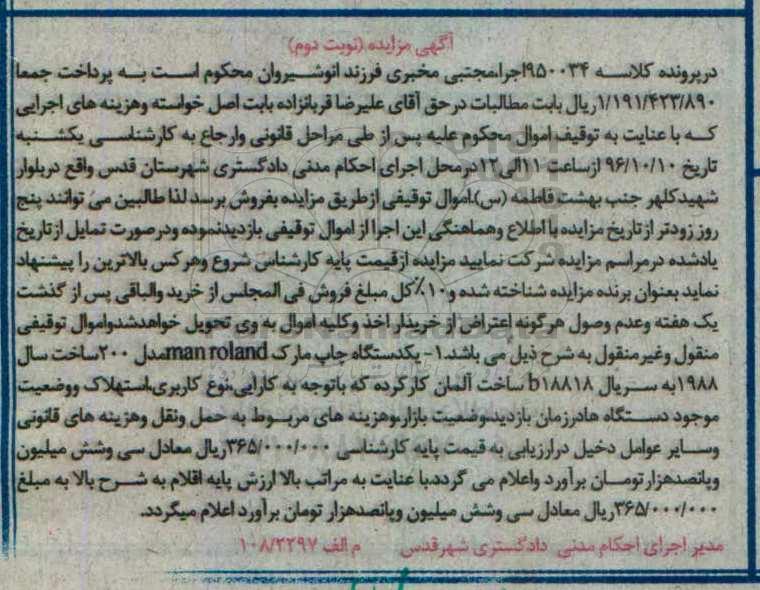 آگهی مزایده (نوبت دوم)
درپرونده کلاسه ۹۵۰۰۳۴اجرا،مجتبی مخبری فرزند انوشیروان محکوم است به پرداخت جمعا
۱/۱۹۱/۴۲۳/۸۹۰ریال بابت مطالبات درحق آقای علیرضا قربانزاده بابت اصل خواسته وهزینه های اجرایی
که با عنایت به توقیف اموال محکوم علیه پس از طی مراحل قانونی وارجاع به کارشناسی یکشنبه
تاریخ ۹۶/۱۰/۱۰ ازساعت ۱۱الی۱۲درمحل اجرای احکام مدنی دادگستری شهرستان قدس واقع دربلوار
شهیدکلهر جنب بهشت فاطمه (س)،اموال توقیفی ازطریق مزایده بفروش برسد لذا طالبین می توانند پنج
روز زودتر ازتاریخ مزایده با اطلاع وهماهنگی این اجرا از اموال توقیفی بازدیدنموده ودرصورت تمایل ازتاریخ
یادشده درمراسم مزایده شرکت نمایید مزایده ازقیمت پایه کارشناس شروع وهرکس بالاترین را پیشنهاد
نماید بعنوان برنده مزایده شناخته شده و۱۰٪کل مبلغ فروش فی المجلس از خرید والباقی پس از گذشت
یک هفته وعدم وصول هرگونه اعتراض از خریدار اخذ وکلیه اموال به وی تحویل خواهدشدواموال توقیفی
منقول وغیرمنقول به شرح ذیل می باشد.۱- یکدستگاه چاپ مارک man rolandمدل ۲۰۰ساخت سال
۱۹۸۸به سریال b۱۸۸۱۸ ساخت آلمان کارکرده که باتوجه به کارایی،نوع کاربری،استهلاک ووضعیت
موجود دستگاه هادرزمان بازدید،وضعیت بازار،وهزینه های مربوط به حمل ونقل وهزینه های قانونی
وسایر عوامل دخیل درارزیابی به قیمت پایه کارشناسی ۳۶۵/۰۰۰/۰۰۰ریال معادل سی وشش میلیون
وپانصدهزارتومان برآورد واعلام می گردد،با عنایت به مراتب بالا ارزش پایه اقلام به شرح بالا به مبلغ
۳۶۵/۰۰۰/۰۰۰ریال معادل سی وشش میلیون وپانصدهزار تومان برآورد اعلام میگردد.
مدیر اجرای احکام مدنی دادگستری شهرقدس م الف ۱۰۸/۲۲۹۷